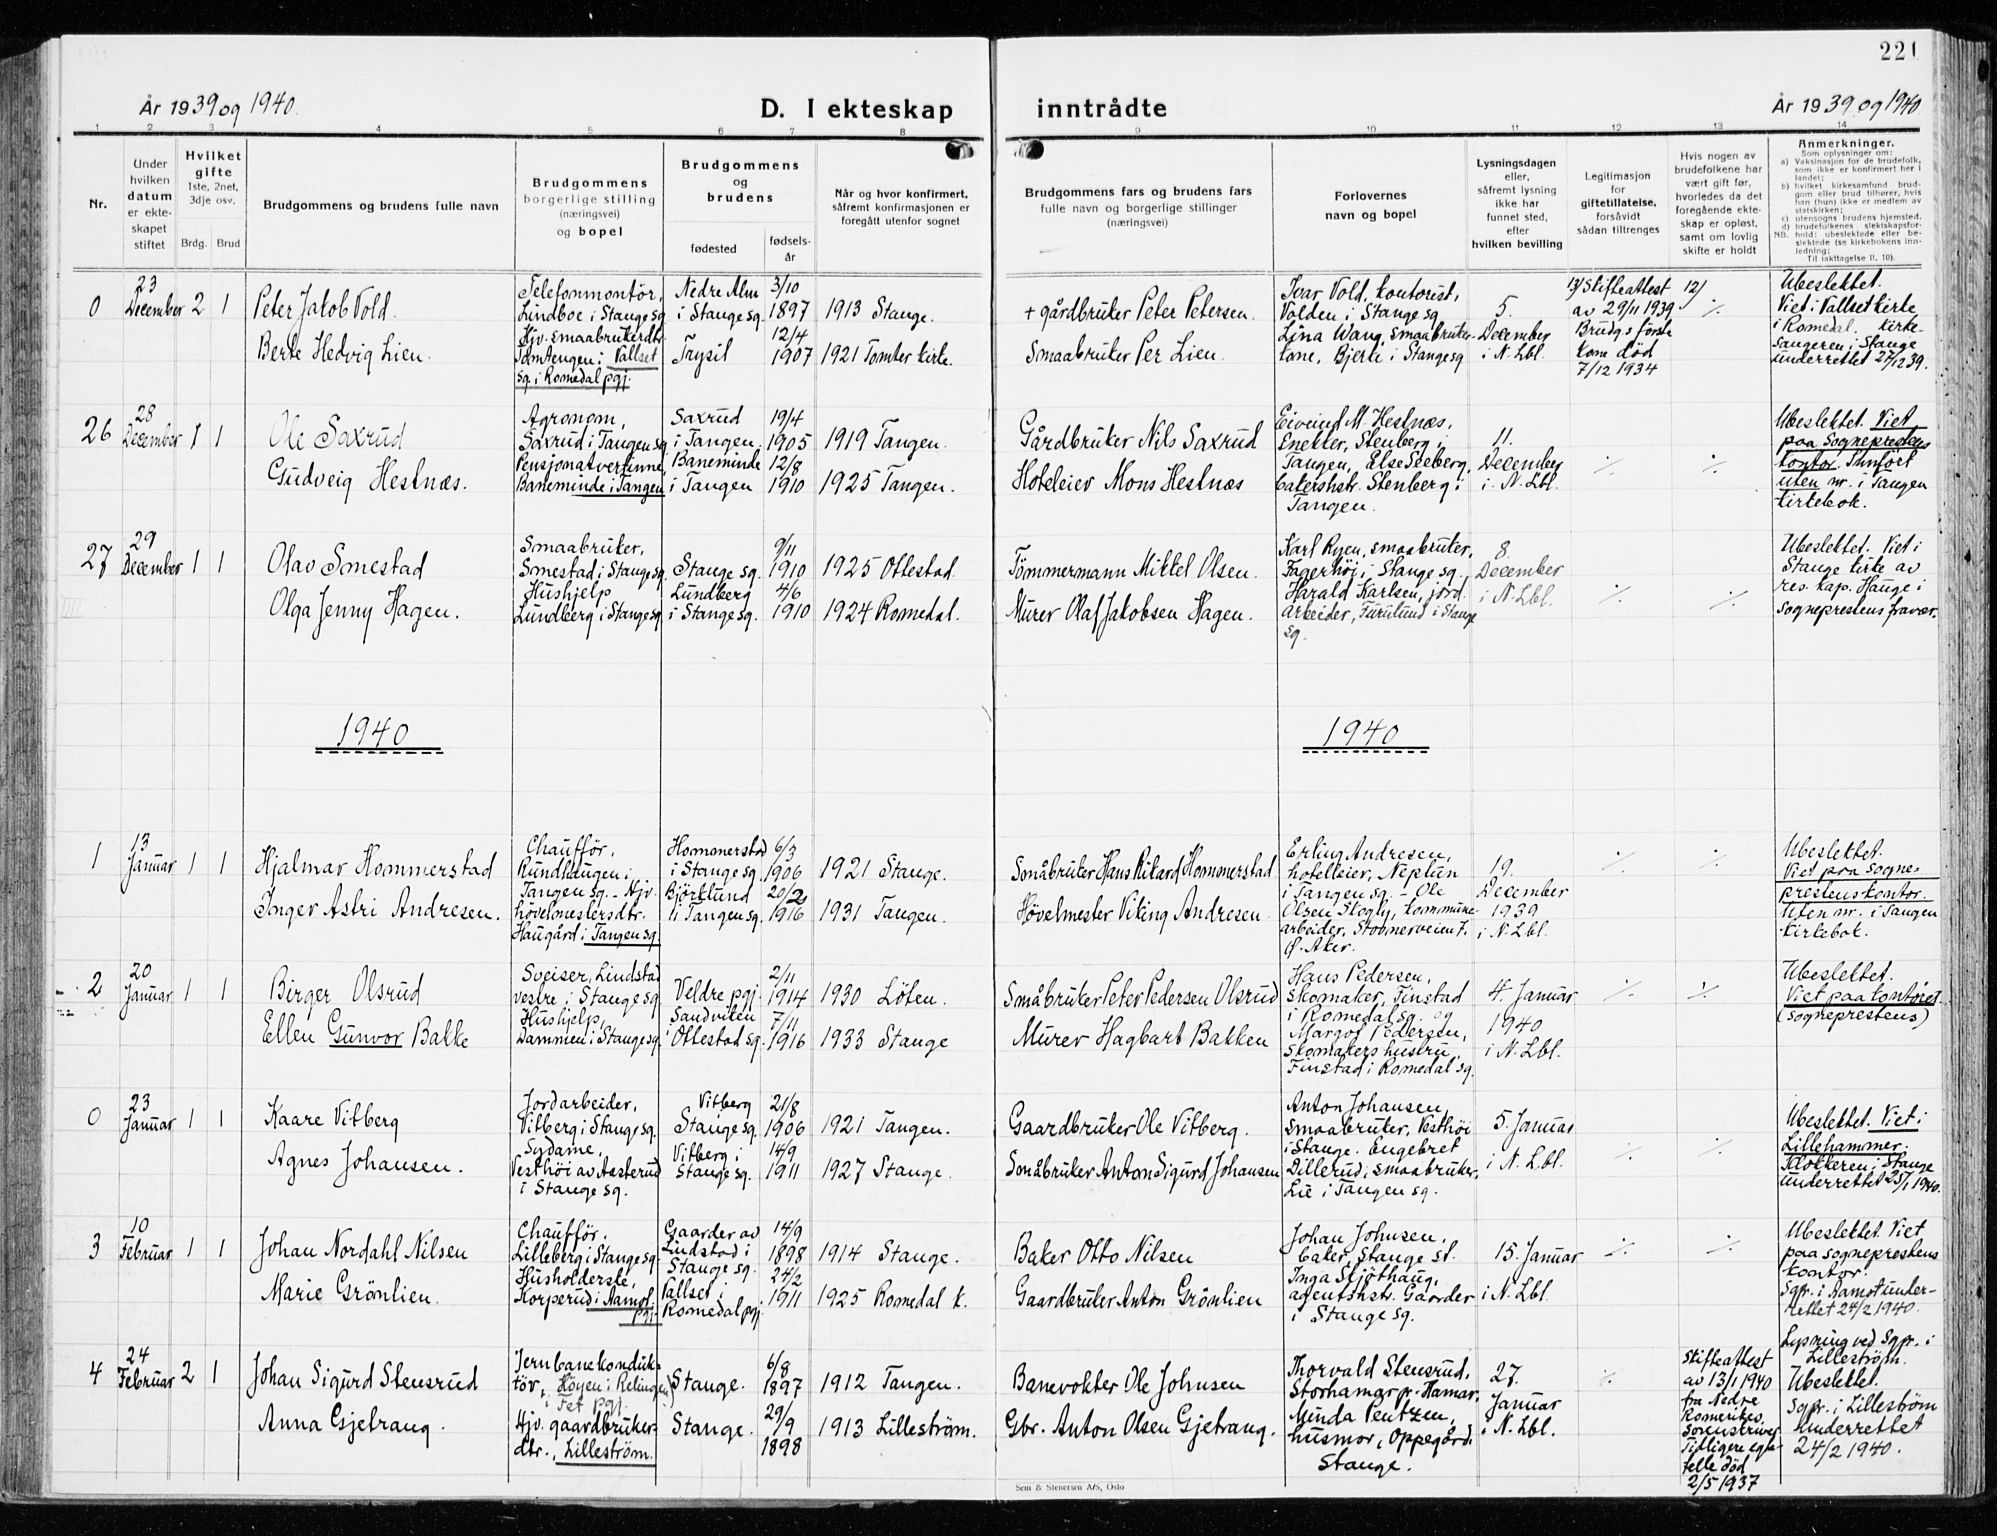 221
År 1939 og 1940.
D. I ekteskap inntrådte
År 1939 og 1940
1 2 3 4 5 6 7 8 9 10 11 12 13 14
Nr.
Under hvilken datum er ekteskapet stiftet
Hvilket gifte
1ste, 2net, 3dje osv.
Brdg. Brud
Brudgommens og brudens fulle navn
Brudgommens borgerlige stilling (næringsvei) og bopel
Brudgommens og brudens
fødested
fødselsår
Når og hvor konfirmert, såfremt konfirmasjonen er foregått utenfor sognet
Brudgommens fars og brudens fars fulle navn og borgerlige stillinger (næringsvei)
Forlovernes navn og bopel
Lysningsdagen eller, såfremt lysning ikke har funnet sted, efter hvilken bevilling
Legitimasjon for giftetillatelse, forsåvidt sådan tiltrenges
Hvis nogen av brudefolkene har vært gift før, hvorledes da det foregående ekteskap er opløst, samt om lovlig skifte er holdt
Anmerkninger.
Som oplysninger om:
a) Vaksinasjon for de brudefolk, som ikke er konfirmert her i landet;
b) hvilket kirkesamfund brudgom eller brud tilhører, hvis han (hun) ikke er medlem av statskirken;
c) utensogns brudens hjemsted,
d) brudefolkenes slektskapsforhold: ubeslektede eller beslektede (se kirkebokens innledning;
NB.
Til iakttagelse II. 10).
0 23 December 2 1
Peter Jakob Vold.
Telefonmontör, Lindboe i Stange sg
Nedre Alm i Stange sg.
3/10 1897
1913 Stange.
+ gårdbruker Peter Petersen.
Berte Hedvig Lien.
Hjv. smaabrukerdtr. Tomtengen i Vallset sg. i Romedal pgj.
Trysil
12/4 1907
1921 Tomter kirke.
Smaabruker Per Lien.
Ivar Vold, kontorist, Volden i Stange sg
Lina Wang, smaabrukerkone, Bjerke i Stange sg
5. December i N. Lbl.
13/ Skifteattest av 29/11 1939
Brudgs förste kone död 7/12 1934
12/ ./.
Ubeslektet. Viet i Vallset kirke i Romedal. Kirkesangeren i Stange underrettet 27/12 39.
26 28 December 1 1
Ole Saxrud
Agronom, Saxrud i Tangen sg
Saxrud i Tangen.
19/4 1905
1919 Tangen.
Gårdbruker Nils Saxrud
Gudveig Hestnæs.
Pensjonatvertinne, Baneminde i Tangen
Baneminde i Tangen
12/8 1910
1925 Tangen.
Hoteleier Mons Hestnæs
Eivind M. Hestnæs, Stenberg i Tangen, Else Seeberg, bakershstr. Stenberg i Tangen.
11. December i N. Lbl.
./. ./.
Ubeslektet. Viet paa Sogneprestens kontor. Innfört uten nr. i Tangen kirkebok.
27 29 December 1 1
Olav Smestad
Smaabruker, Smestad i Stange sg.
Stange sg.
9/11 1910
1925 Ottestad.
Tömmermann Mikkel Olsen.
Olga Jenny Hagen.
Hushjelp Lundberg i Stange sg
Lundberg i Stange sg.
4/6 1910
1924 Romedal.
Murer Olaf Jakobsen Hagen.
Karl Ryen, smaabruker, Fagerhöi i Stange sg.
Harald Karlsen, jordarbeider, Furulund i Stange sg.
8. December i N. Lbl.
./. ./.
Ubeslektet. Viet i Stange kirke av res. kap. Hauge i Sogneprestens fravær.
1940
1940
1 13 Januar 1 1
Hjalmar Hommerstad
Chaufför, Rundhaugen i Tangen sg.
Hommerstad i Stange sg.
6/3 1906
1921 Stange.
Småbruker Hans Rikard Hommerstad
Inger Astri Andresen.
Hjv. hövelmestersdtr. Haugård i Tangen sg.
Björklund i Tangen sg.
20/2 1916
1931 Tangen.
Hövelmester Viking Andresen
Erling Andresen, hotelleier, Neptun i Tangen sg. - Ole Olsen Skogly, kommunearbeider, Stovnerveien 7. Ø. Aker.
19. December 1939 i N. Lbl.
./. ./.
Ubeslektet. Viet paa Sogneprestens kontor. Uten nr. i Tangen kirkebok.
2 20 Januar 1 1
Birger Olsrud
Sveiser, Lindstad vestre i Stange sg
Veldre pgj.
2/11 1914
1930 Löten.
Småbruker Peter Pedersen Olsrud
Ellen Gunvor Bakke
Hushjelp, Dammen i Stange sg.
Sandviken i Ottestad sg.
7/11 1916
1933 Stange
Murer Hagbart Bakken
Hans Pedersen, skomaker, Finstad i Romedal sg. og Margot Pedersen, skomakers hustru, Finstad i Romedal sg.
4. Januar 1940 i N. Lbl.
./. ./.
Ubeslektet. Viet paa kontoret (sogneprestens)
0 23 Januar 1 1
Kaare Vitberg
Jordarbeider, Vitberg i Stange sg.
Vitberg Stange sg.
21/8 1906
1921 Tangen.
Gaardbruker Ole Vitberg.
Agnes Johansen.
Sydame, Vesthöi av Aasterud i Stange sg.
Vitberg i Stange sg.
14/9 1911
1927 Stange.
Småbruker Anton Sigurd Johansen
Anton Johansen, smaabruker, Vesthöi i Stange. Engebret Dillerud, smaabruker, Lie i Tangen sg.
5. Januar i N. Lbl.
./. ./.
Ubeslektet. Viet i Lillehammer. Klokkeren i Stange underrettet 25/1 1940.
3 10 Februar 1 1
Johan Nordahl Nilsen
Chaufför. Lilleberg i Stange sg
Gaarder av Lindstad i Stange sg.
14/9 1898
1914 Stange.
Baker Otto Nilsen
Marie Grönlien.
Husholderske, Korperud i Aamot pgj.
Vallset i Romedal pgj.
24/2 1911
1925 Romedal k.
Gaardbruker Anton Grönlien
Johan Johnsen, baker, Stange st.
Inga Skjöthaug, agentshstr. Gaarder i Stange sg.
15. Januar i N. Lbl.
./. ./.
Ubeslektet. Viet paa sogneprestens kontor. Sgpr. i Aamot underrettet 24/2 1940.
4 24 Februar 2 1
Johan Sigurd Stensrud
Jernbanekonduktör, Höyen i Relingen i Fet pgj.
Stange.
6/8 1897
1912 Tangen.
Banevokter Ole Johnsen
Anna Gjetrang.
Hjv. gaardbrukerdtr., Lilleström.
Stange.
29/9 1898
1913 Lilleström.
Gbr. Anton Olsen Gjetrang.
Thorvald Stensrud, Storhamar pr. Hamar. Minda Pentzen, husmor, Oppegård i Stange.
27. Januar i N. Lbl.
./.
Skifteattest av 13/1 1940 fra Nedre Romerikes Sorenskriver Tidligere egtefelle död 2/5 1937
Lysning ved Sgpr. i Lilleström. Ubeslektet. Sgpr. i Lilleström underrettet 24/2 1940.
Sem & Stenersen A/S, Oslo